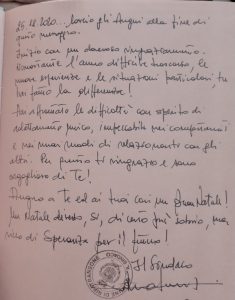 25.12.2020... lascio gli Auguri alla fine di
questo messaggio.
Inizio con un doveroso ringraziamento.
Nonostante l'anno difficile trascorso, le
nuove esperienze e le situazioni particolari, tu
hai fatto la differenza!
Hai affrontato le difficoltà con spirito di
adattamento unico, impeccabile nei comportamenti
e nei nuovi modi di relazionarti con gli
altri. Per questo ti ringrazio e sono
orgoglioso di Te!
Auguro a Te ed ai tuoi cari un Buon Natale!
Un Natale diverso, sì, di certo più sobrio, ma
ricco di Speranza per il futuro!
Il Sindaco